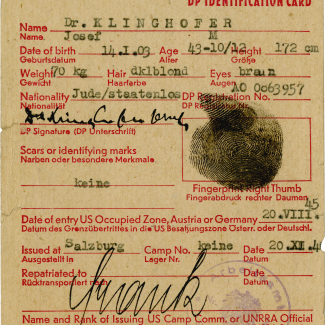 DP IDENTIFICATION CARD
Name Dr. KLINGHOFER
Name. Josef M
Date of birth 14.I.03 Age 43-10/12 Height 172 cm
Geburtsdatum Alter Größe
Weight 70 kg Hair dklblond Eyes braun
Gewicht Haarfarbe Augen
Nationality Jude/staatenlos DP Registration No. AO 0063957
Nationalität DP Registrier Nr.
DP Signature (DP Unterschrift)
Scars or identifying marks
Narben oder besondere Merkmale
keine
Fingerprint Right Thumb
Fingerabdruck rechter Daumen
Date of entry US Occupied Zone, Austria or Germany 20.VIII. 45
Datum des Grenzübertrittes in die US Besatzungszone Österr. oder Deutschl.
Issued at Salzburg Camp No. keine Date 20.XI.4
Ausgestellt in Lager Nr. Datum
Repatriated to Date
Rücktransportiert nach Datum
Name and Rank of Issuing US Camp Comm. or UNRRA Official